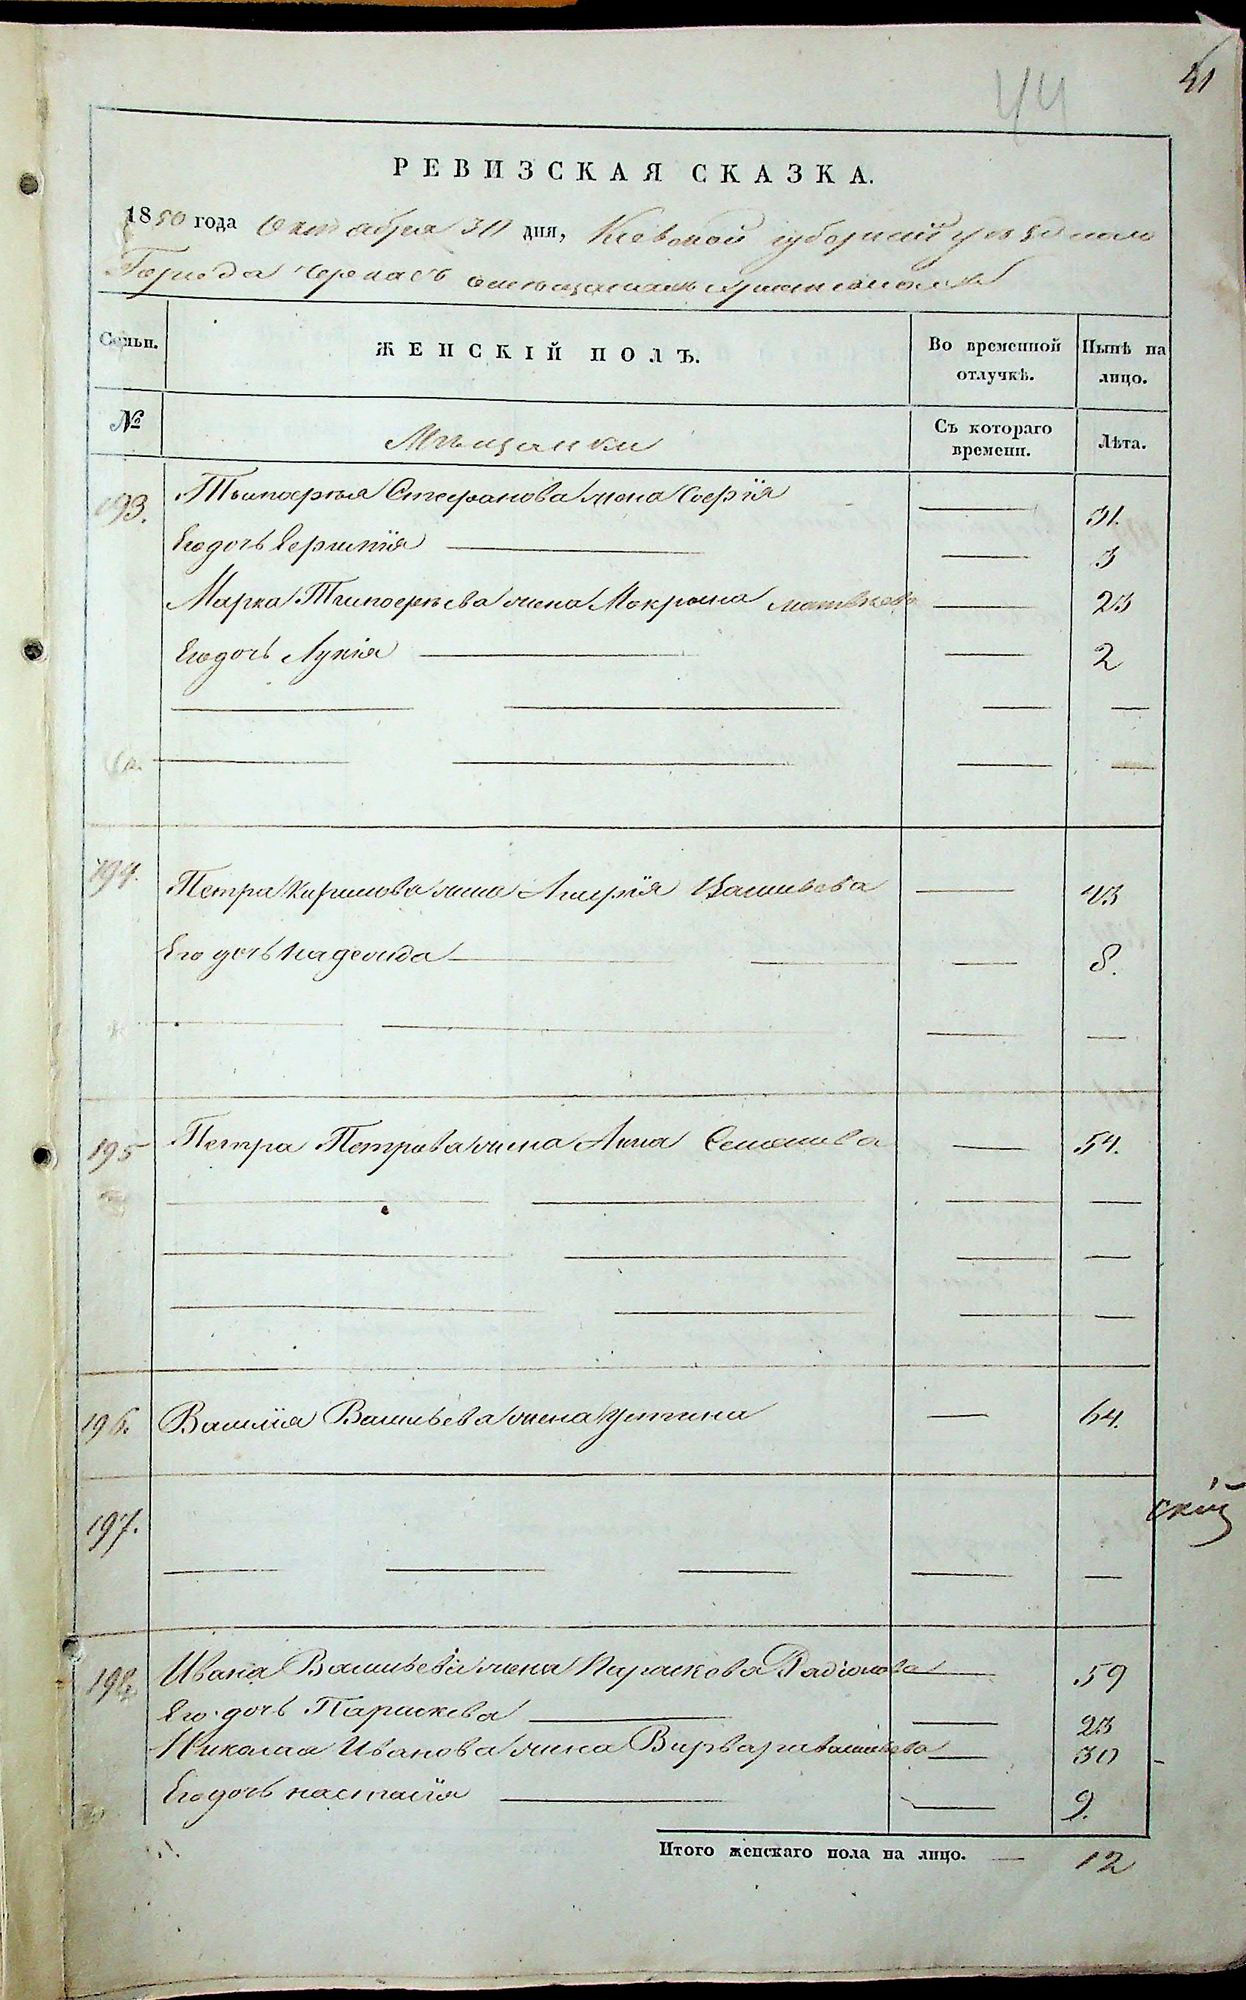 41
44
РЕВИЗСКАЯ СКАЗКА.
1850 года Октября 30 дня, Киевской губернии уезднаго
Города Черкасъ о мещанахъ христианахъ
Семьи. ЖЕНСКІЙ ПОЛЪ. Во временной отлучкѣ. Нынѣ на лицо.
№ Мещанки Съ котораго времени. Лѣта.
193. Тимофея Стефанова жена Софiя — 31.
Его дочь — 3
Марка Тимофеева жена Мокрына — 23
Его дочь Лукiя — 2
194. Петра Кирилова жена Васильева — 43
Его дочь Надежда — 8.
195 Петра Петрова жена Анна Семенова — 54.
196. Василiя Васильева жена Устина — 64.
197.
скій
198 Ивана Васильева жена Параскева Радiонова — 59
Его дочь Параскева — 23
Николая Иванова жена Варвара Васильева — 30
Его дочь Настасiя — 9.
Итого женскаго пола на лицо. — 12